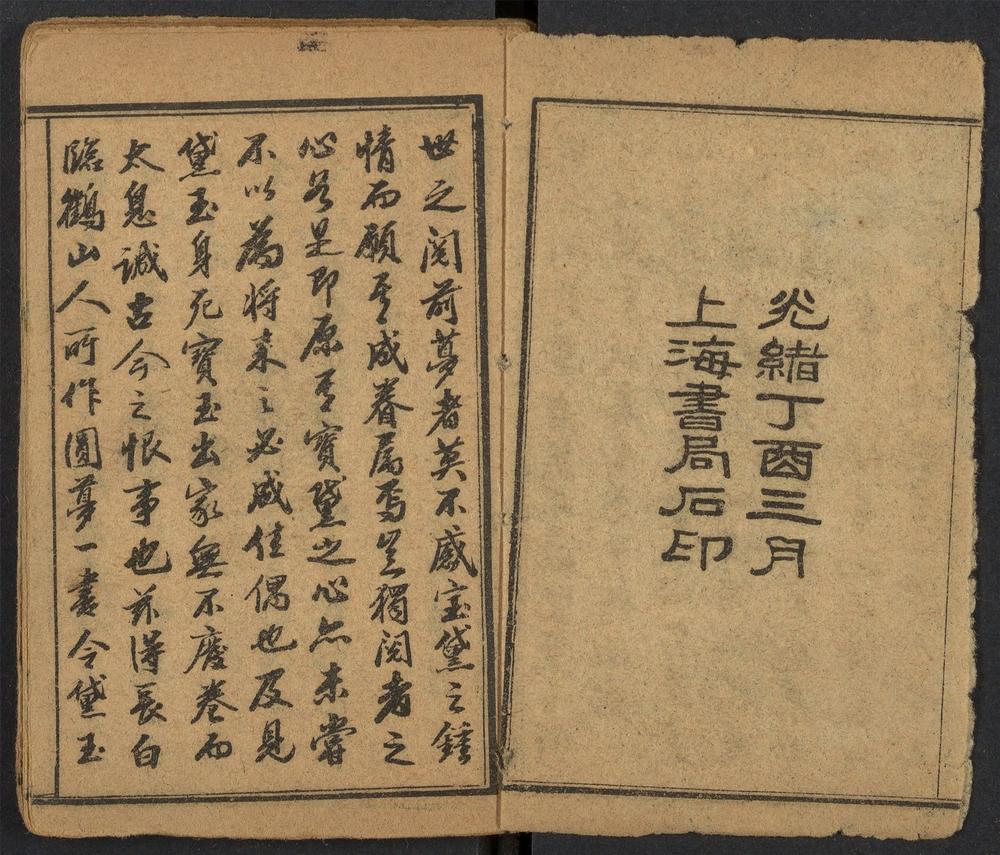 光緒丁酉三月
上海書局石印
世之閱前夢者莫不感宝黛之鍾
情而願其成眷屬焉豈獨閱者之
心若是即原其寳黛之心亦未嘗
不以為将来之必成佳偶也及見
黛玉身死寳玉出家無不廢卷而
太息誠古今之恨事也兹得長白
臨鶴山人所作圓夢一書令黛玉